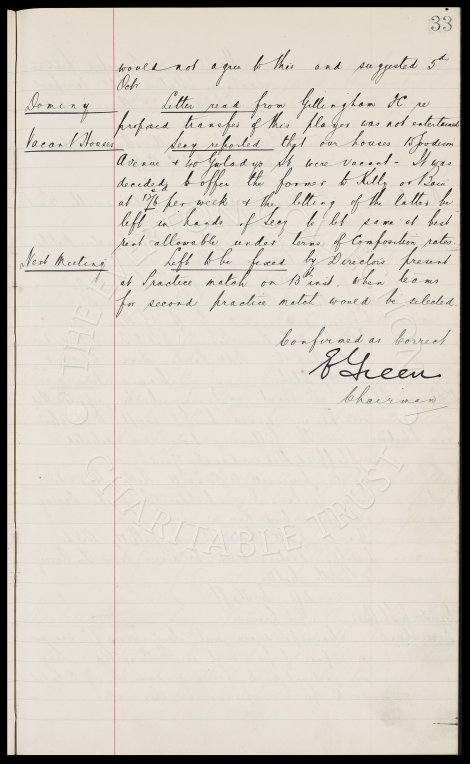 33
would not agree to this and suggested 5th
Octr
Dominy Letter read from Gillingham FC re
proposed transfer of this player was not entertained
Vacant Houses Secy reported that our houses 15 Goodison
Avenue & 40 Gwladys St were vacant - It was
decided to offer the former to Kelly or Bain
at 17/6 per week & the letting of the latter be
left in hands of Secy to let same at best
rent allowable under terms of composition rates.
Next Meeting Left to be fixed by Directors present
at practice match on 13th inst. when teams
for second practice match would be selected
Confirmed as Correct
E Green
Chairman
© THE EVERTON
CHARITABLE TRUST